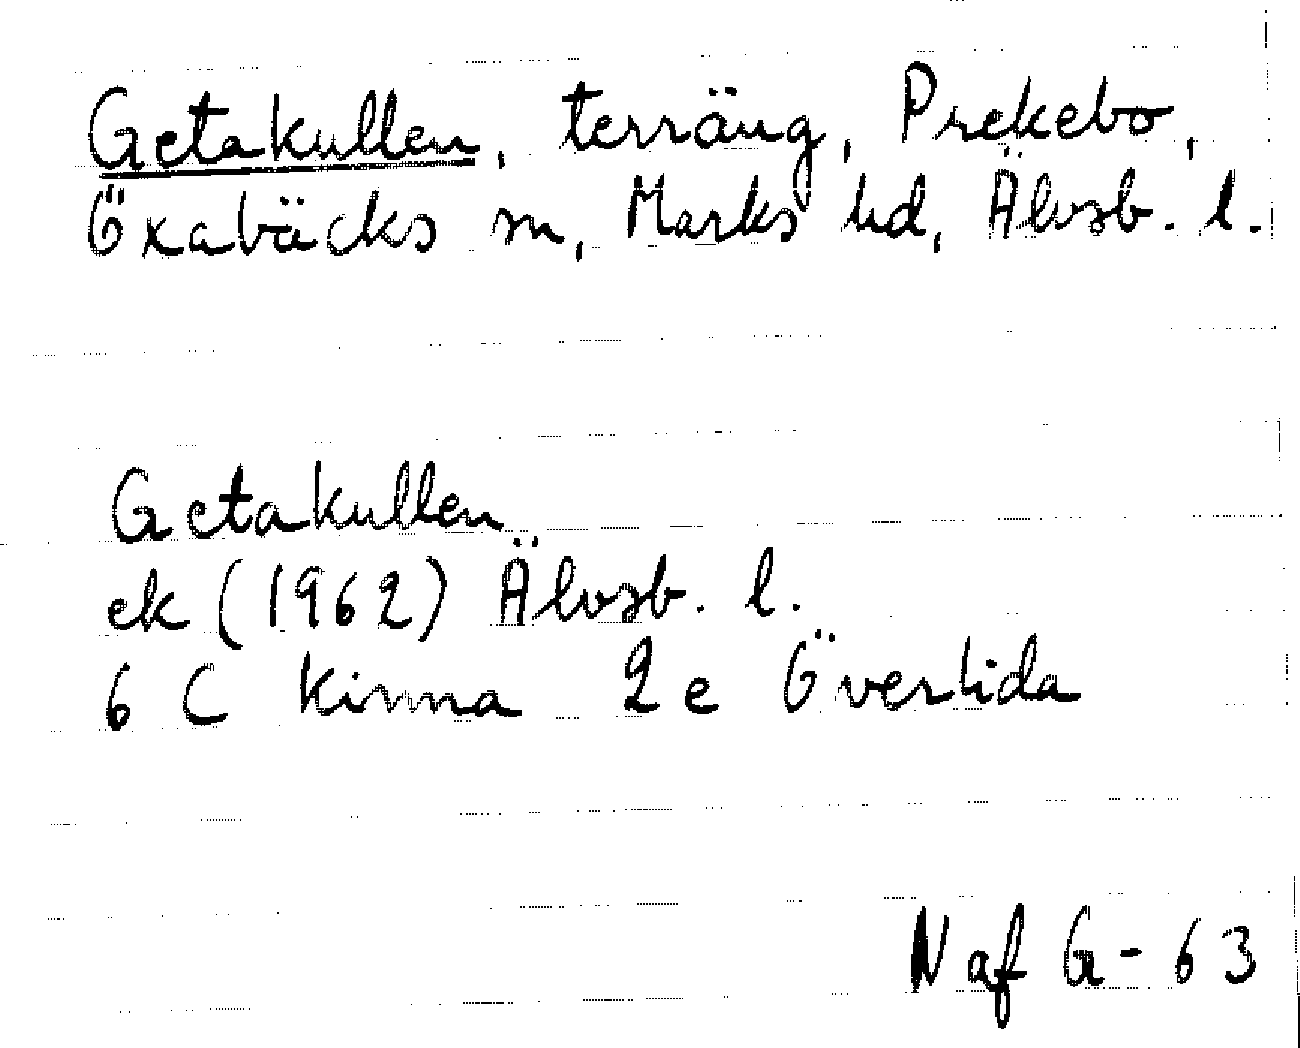 Getakullen, terräng, Prekebo,
Öxabäcks sn, Marks hd, Älvsb. l.
Getakullen
ek (1962) Älvsb. l.
6 C Kinna 2e Överlida
N af G-63